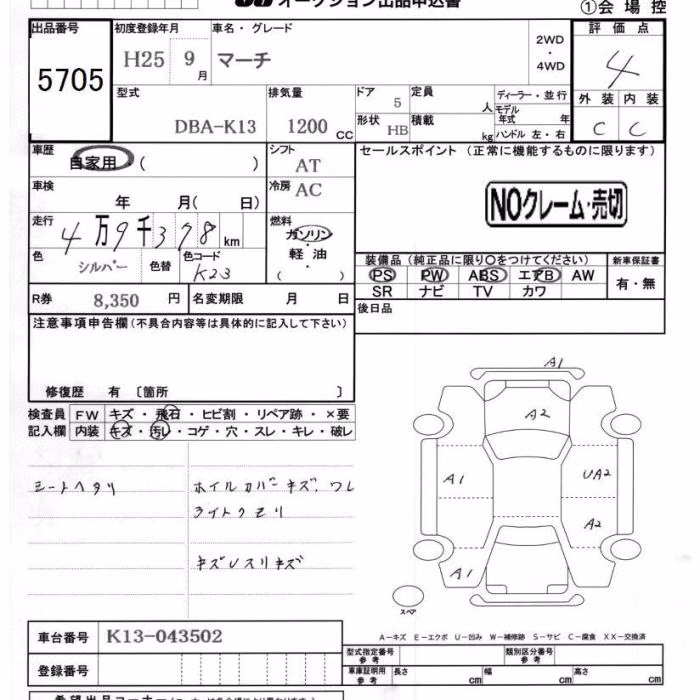 オークション出品申込書
①会場控
出品番号 5705
初度登録年月 H25 9月
車名・グレード マーチ
2WD・4WD
評価点 4
型式 DBA-K13
排気量 1200 CC
ドア 5
形状 HB
定員 人
積載 kg
ディーラー・並行
モデル年式 年
ハンドル 左・右
外装 C
内装 C
車歴 自家用 ( )
シフト AT
セールスポイント (正常に機能するものに限ります)
NOクレーム・売切
車検 年 月( 日)
冷房 AC
走行 4万9千378km
燃料 ガソリン・軽油 ( )
色 シルバー
色替
色コード K23
装備品 (純正品に限り○をつけてください)
PS PW ABS エアB AW
SR ナビ TV カワ
新車保証書 有・無
R券 8,350 円
名変期限 月 日
後日品
注意事項申告欄(不具合内容等は具体的に記入して下さい)
修復歴 有 〔箇所 〕
検査員記入欄
FW キズ・飛石・ヒビ割・リペア跡・×要
内装 キズ・汚レ・コゲ・穴・スレ・キレ・破レ
シートヘタリ
ホイルカバーキズ、ワレ
ライトクモリ
キズUスリキズ
A1
A2
A1
UA2
A2
A1
スペア
A－キズ E－エクボ U－凹み W－補修跡 S－サビ C－腐食 XX－交換済
車台番号 K13-043502
型式指定番号 参考
類別区分番号 参考
登録番号
車庫証明用 参考 長さ cm 幅 cm 高さ cm